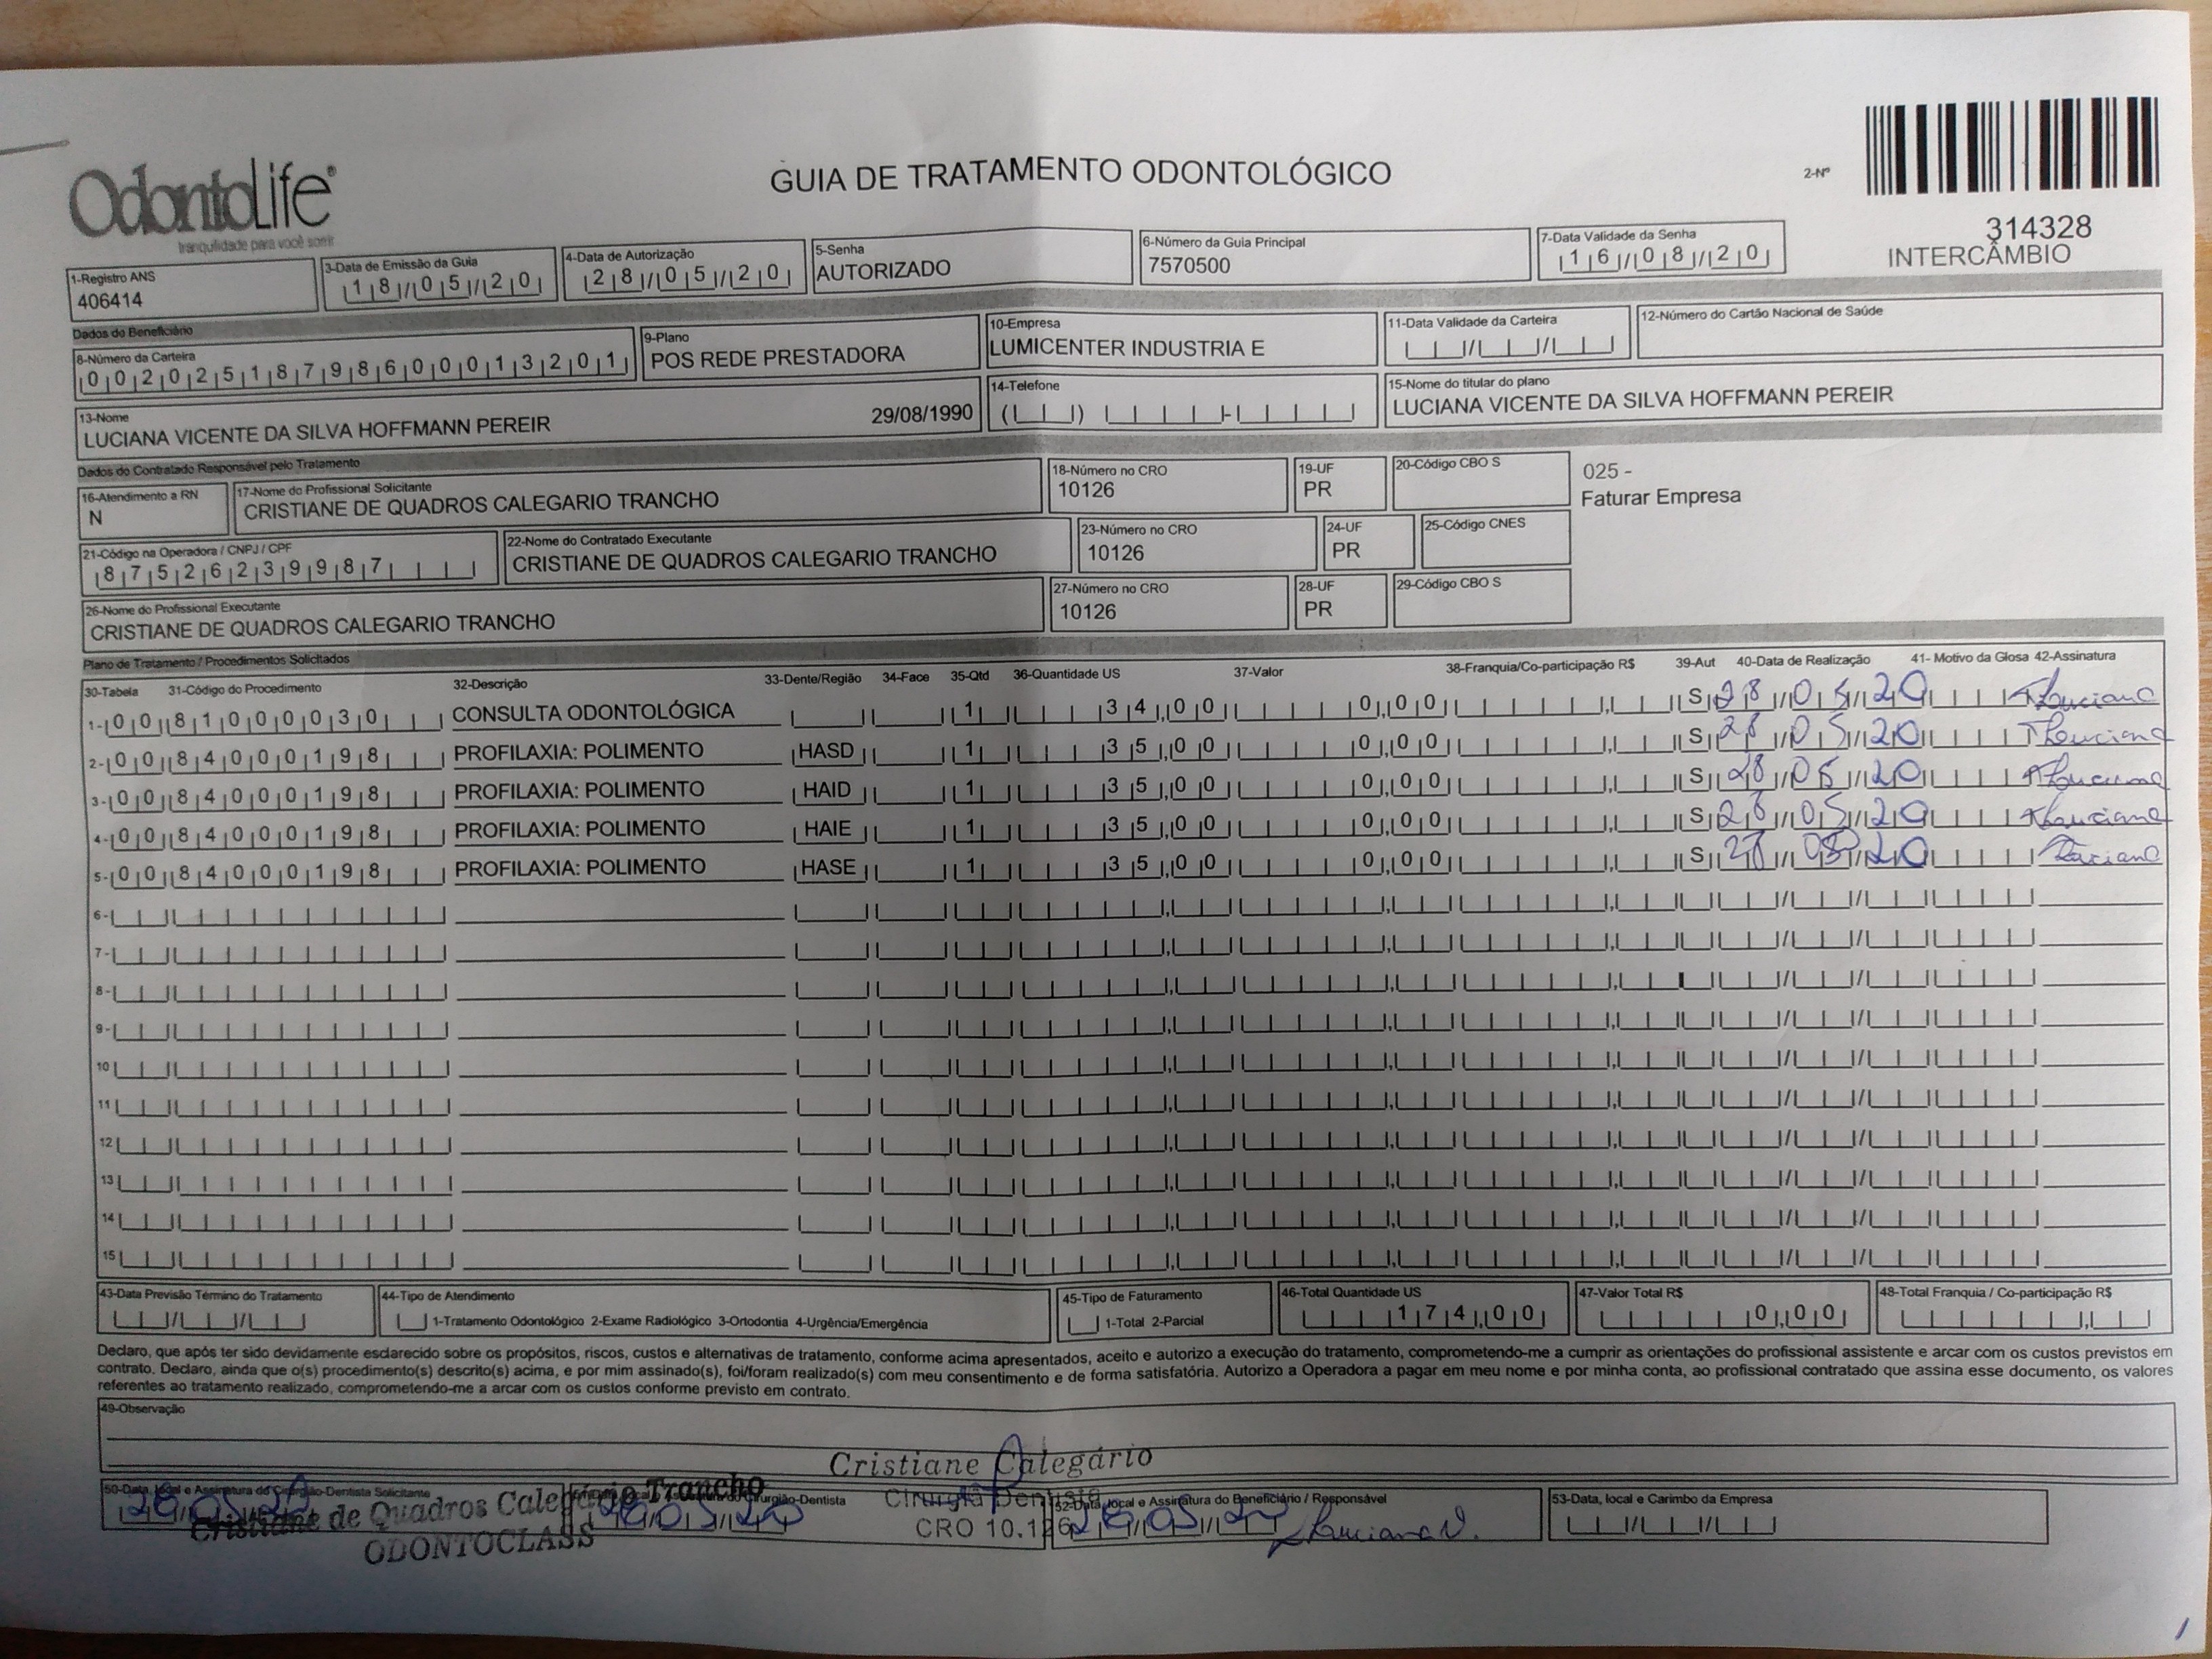 OdontoLife®
tranquilidade para você sorrir
GUIA DE TRATAMENTO ODONTOLÓGICO
2-Nº
314328
INTERCÂMBIO
1-Registro ANS
406414
3-Data de Emissão da Guia
18/05/20
4-Data de Autorização
28/05/20
5-Senha
AUTORIZADO
6-Número da Guia Principal
7570500
7-Data Validade da Senha
16/08/20
Dados do Beneficiário
8-Número da Carteira
00202518798600013201
9-Plano
POS REDE PRESTADORA
10-Empresa
LUMICENTER INDUSTRIA E
11-Data Validade da Carteira
12-Número do Cartão Nacional de Saúde
13-Nome
LUCIANA VICENTE DA SILVA HOFFMANN PEREIR 29/08/1990
14-Telefone
15-Nome do titular do plano
LUCIANA VICENTE DA SILVA HOFFMANN PEREIR
Dados do Contratado Responsável pelo Tratamento
16-Atendimento a RN
N
17-Nome do Profissional Solicitante
CRISTIANE DE QUADROS CALEGARIO TRANCHO
18-Número no CRO
10126
19-UF
PR
20-Código CBO S
025 -
Faturar Empresa
21-Código na Operadora / CNPJ / CPF
87526239987
22-Nome do Contratado Executante
CRISTIANE DE QUADROS CALEGARIO TRANCHO
23-Número no CRO
10126
24-UF
PR
25-Código CNES
26-Nome do Profissional Executante
CRISTIANE DE QUADROS CALEGARIO TRANCHO
27-Número no CRO
10126
28-UF
PR
29-Código CBO S
Plano de Tratamento / Procedimentos Solicitados
30-Tabela 31-Código do Procedimento 32-Descrição 33-Dente/Região 34-Face 35-Qtd 36-Quantidade US 37-Valor 38-Franquia/Co-participação R$ 39-Aut 40-Data de Realização 41- Motivo da Glosa 42-Assinatura
1- 00 81000030 CONSULTA ODONTOLÓGICA 1 34,00 0,00 S 28/05/20 Luciana
2- 00 84000198 PROFILAXIA: POLIMENTO HASD 1 35,00 0,00 S 28/05/20 Luciana
3- 00 84000198 PROFILAXIA: POLIMENTO HAID 1 35,00 0,00 S 28/05/20 Luciana
4- 00 84000198 PROFILAXIA: POLIMENTO HAIE 1 35,00 0,00 S 28/05/20 Luciana
5- 00 84000198 PROFILAXIA: POLIMENTO HASE 1 35,00 0,00 S 28/05/20 Luciana
6-
7-
8-
9-
10
11
12
13
14
15
43-Data Previsão Término do Tratamento
44-Tipo de Atendimento
1-Tratamento Odontológico 2-Exame Radiológico 3-Ortodontia 4-Urgência/Emergência
45-Tipo de Faturamento
1-Total 2-Parcial
46-Total Quantidade US
174,00
47-Valor Total R$
0,00
48-Total Franquia / Co-participação R$
Declaro, que após ter sido devidamente esclarecido sobre os propósitos, riscos, custos e alternativas de tratamento, conforme acima apresentados, aceito e autorizo a execução do tratamento, comprometendo-me a cumprir as orientações do profissional assistente e arcar com os custos previstos em
contrato. Declaro, ainda que o(s) procedimento(s) descrito(s) acima, e por mim assinado(s), foi/foram realizado(s) com meu consentimento e de forma satisfatória. Autorizo a Operadora a pagar em meu nome e por minha conta, ao profissional contratado que assina esse documento, os valores
referentes ao tratamento realizado, comprometendo-me a arcar com os custos conforme previsto em contrato.
49-Observação
Cristiane Calegário
Cirurgiã Dentista
CRO 10.126
50-Data, local e Assinatura do Cirurgião-Dentista Solicitante
28/05/20
Cristiane de Quadros Calegário Trancho
ODONTOCLASS
Cirurgião-Dentista
28/05/20
52-Data, local e Assinatura do Beneficiário / Responsável
28/05/20 Luciana V.
53-Data, local e Carimbo da Empresa